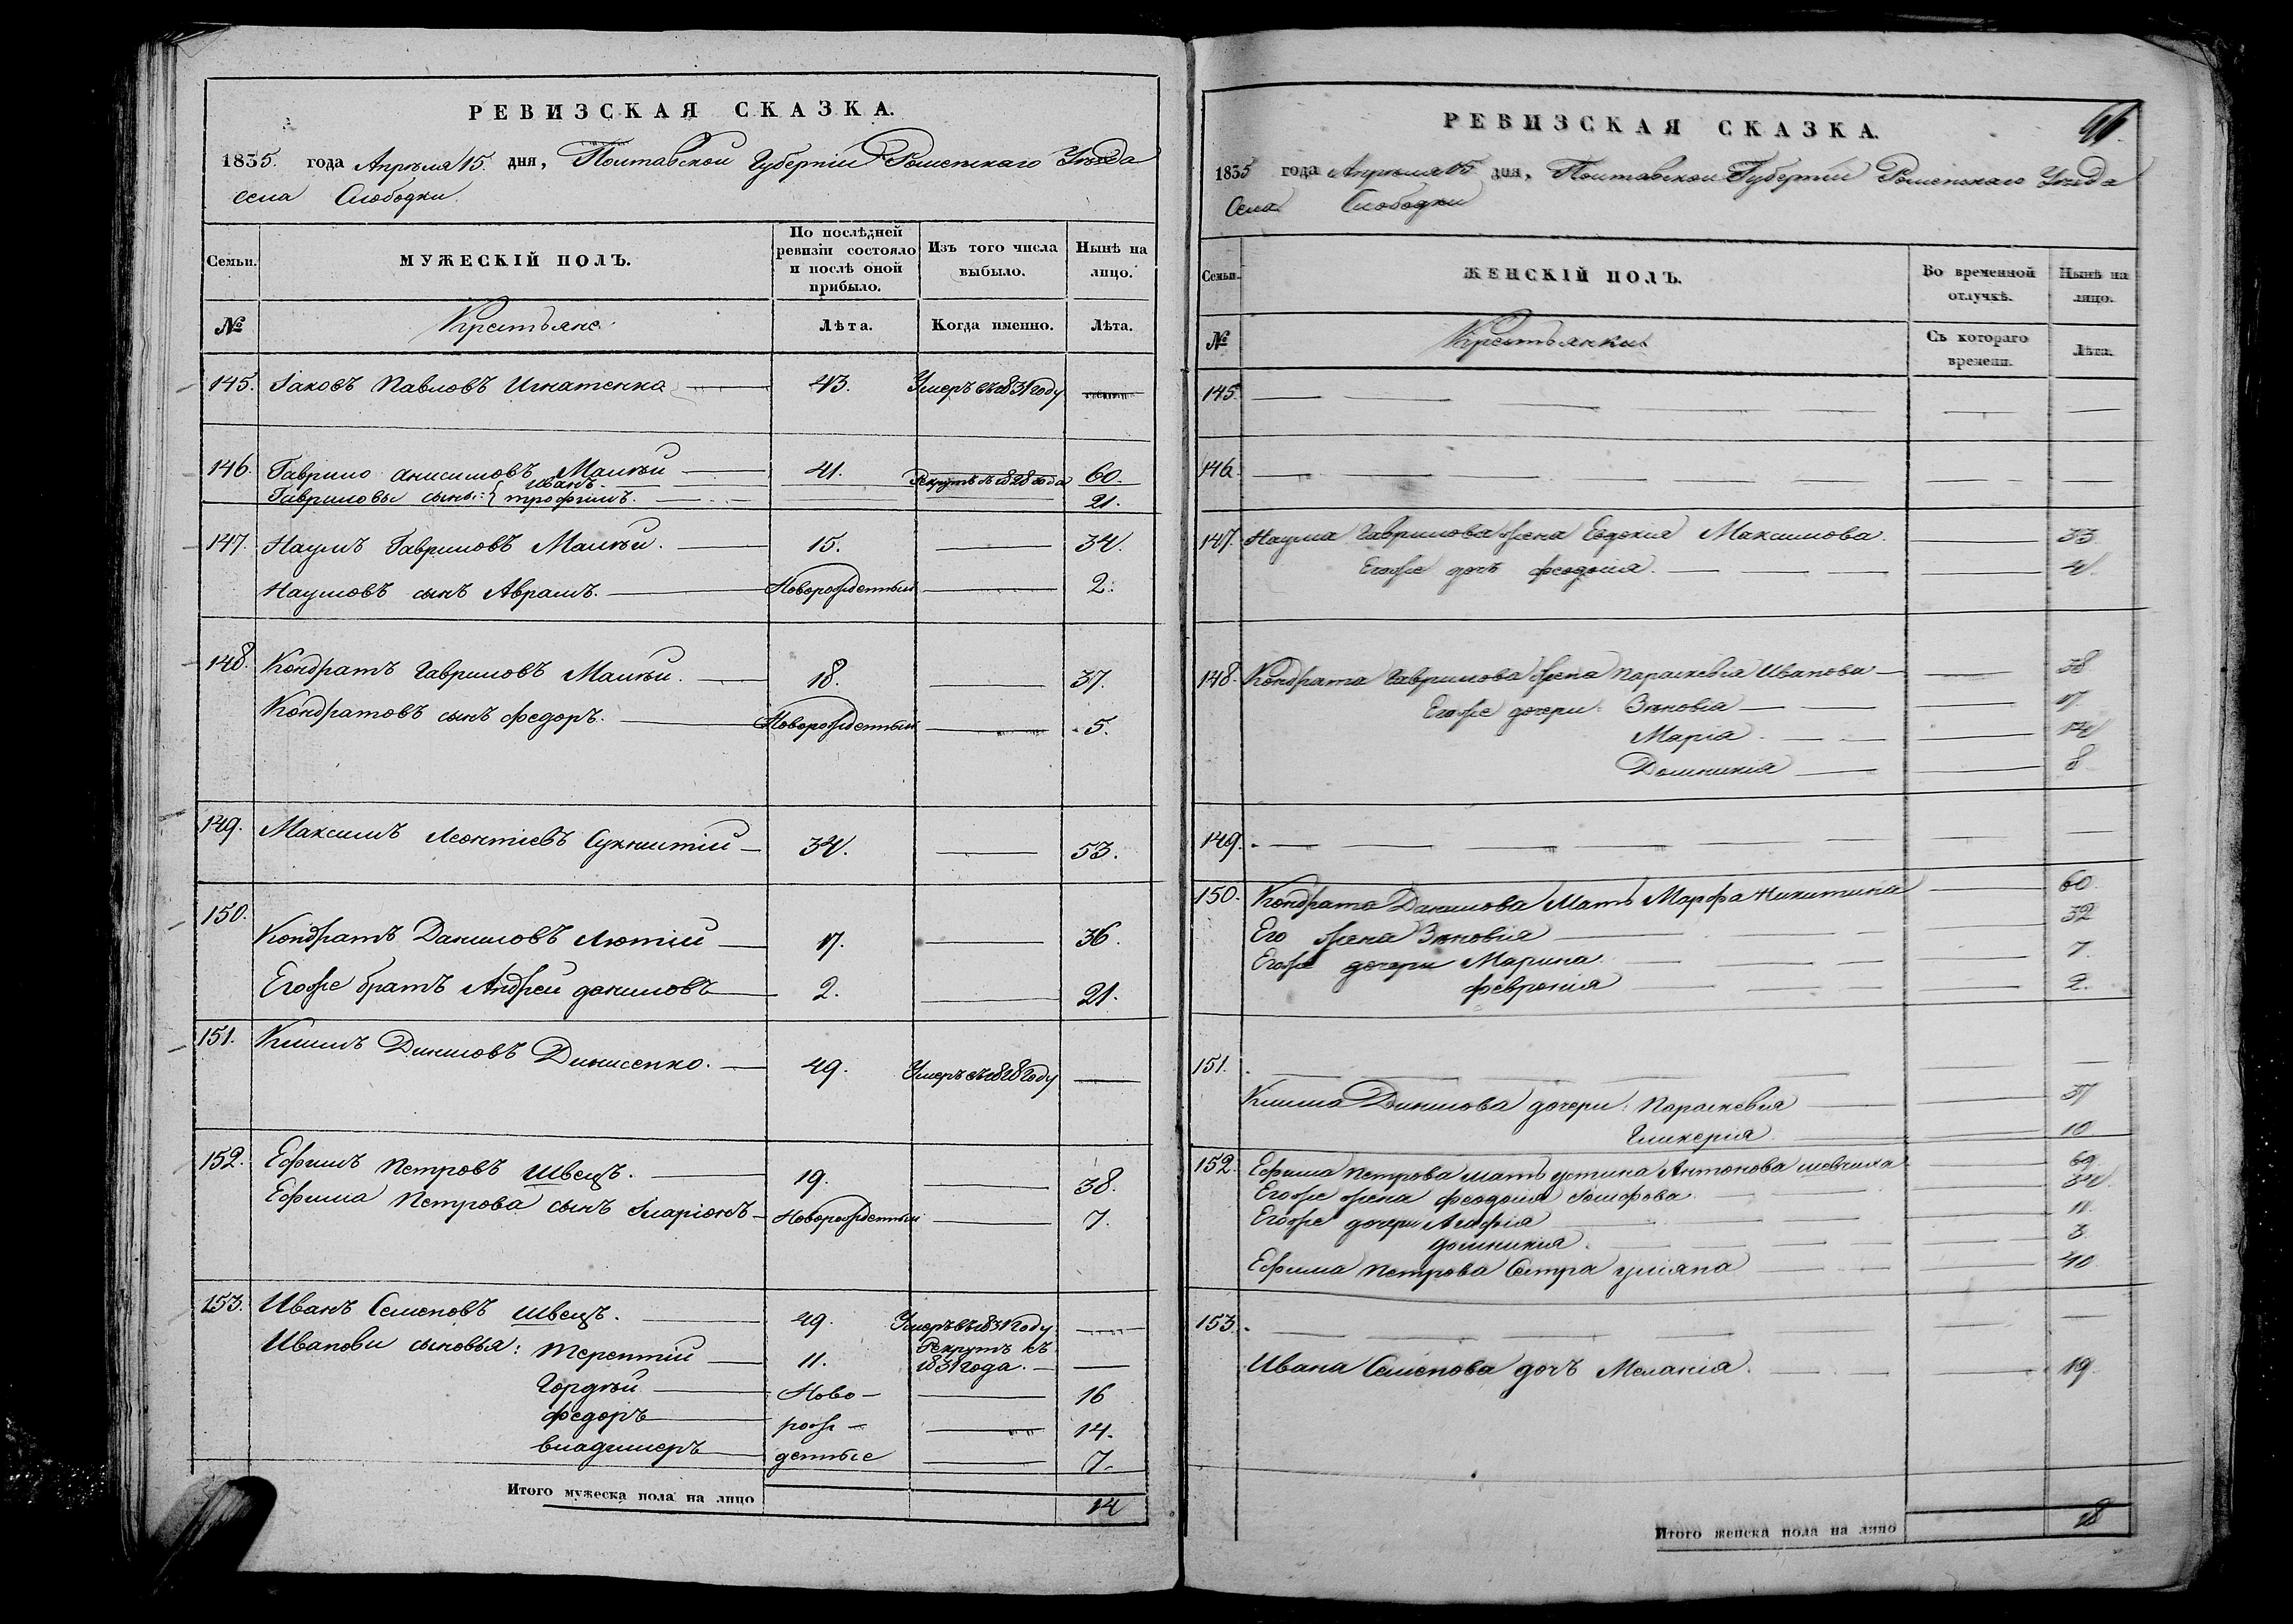 РЕВИЗСКАЯ СКАЗКА.
1835. года Апрѣля 15. дня, Полтавской Губерніи Роменскаго Уѣзда
села Слободки.
Семьи. МУЖЕСКІЙ ПОЛЪ. По послѣдней ревизіи состояло и послѣ оной прибыло. Изъ того числа выбыло. Нынѣ на лицо.
№ Крестьяне. Лѣта. Когда именно. Лѣта.
145. Іаковъ Павловъ Игнатенка 43. Умеръ въ 1831 году
146. Гаврило Анисимовъ Малѣй 41. 60.
Гавриловы сыны: Иванъ. Рекрутъ въ 1828 года
трофимъ. 21.
147. Наумъ Гавриловъ Малѣй. 15. 34.
Наумовъ сынъ Аврамъ. Новорожденный 2.
148. Кондратъ Гавриловъ Малѣй. 18. 37.
Кондратовъ сынъ федоръ. Новорожденный 5.
149. Максимъ Леонтіевъ 34. 53.
150. Кондратъ Даниловъ Лютій 17. 36.
Егоже братъ Андрей даниловъ 2. 21.
151. Климъ Диниловъ Динисенко. 49. Умеръ въ 1828 году
152. Ефимъ Петровъ Швецъ. 19. 38.
Ефима Петрова сынъ Иларіонъ Новорожденный 7.
153. Иванъ Семеновъ швецъ. 49. Умеръ въ 1831 году
Ивановы сыновья: Терентій 11. Рекрутъ въ 1831 года.
Гордѣй Ново- 16
федоръ рож- 14.
владимеръ денные 7.
Итого мужеска пола на лицо 14
РЕВИЗСКАЯ СКАЗКА.
1835 года Апрѣля 15 дня, Полтавской Губерніи Роменскаго Уѣзда
Села Слободки
Семьи. ЖЕНСКІЙ ПОЛЪ. Во временной отлучкѣ. Нынѣ на лицо.
№ Крестьянки. Съ котораго времени. Лѣта.
145.
146.
147. Наума Гаврилова жена Евдокія Максимова. 33
Егоже дочь феодосія. 4.
148. Кондрата Гаврилова жена Параскевія Иванова 38
Егоже дочери: Зѣновія 17.
Марія. 14
Домникія 8
149.
150. Кондрата Данилова Мать Марфа Никитина 60.
Его жена Зѣновія 32
Егоже дочери Марина. 7.
февронія 2.
151.
Клима Динилова дочери: Параскевія 37
Гликерія. 10
152. Ефима Петрова мать устина Антонова 69.
Егоже жена феодосія Іосифова. 34.
Егоже дочери Агафія 11.
домникія. 3.
Ефима Петрова Сестра уліяна 40.
153.
Ивана Семенова дочь Меланія. 19.
Итого женска пола на лицо 18